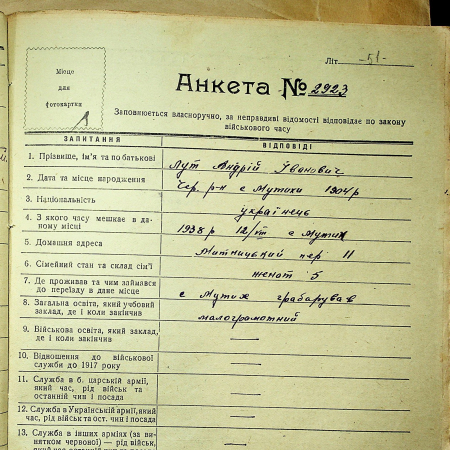 Літ. -51-
Місце
для
фотокартки
Анкета № 2923
Заповнюється власноручно, за неправдиві відомості відповідає по закону
військового часу
ЗАПИТАННЯ ВІДПОВІДІ
1. Прізвище, ім'я та по батькові Лут Андрій Іванович
2. Дата та місце народження Чер. р-н с Мутихи 1904 р
3. Національність українець
4. З якого часу мешкає в да-
ному місці 1938 р 12/VII с Мутих
5. Домашня адреса Митницький пер 11
6. Сімейний стан та склад сім'ї женат 5
7. Де проживав та чим займався
до переїзду в дане місце с Мутих грабарував
8. Загальна освіта, який учбовий
заклад, де і коли закінчив малограмотний
9. Військова освіта, який заклад,
де і коли закінчив —
10. Відношення до військової
служби до 1917 року —
11. Служба в б. царській армії,
який час, рід військ та
останній чин і посада —
12. Служба в Українській армії, який
час, рід військ та ост. чин і посада —
13. Служба в інших арміях (за ви-
нятком червоної) — рід військ, —